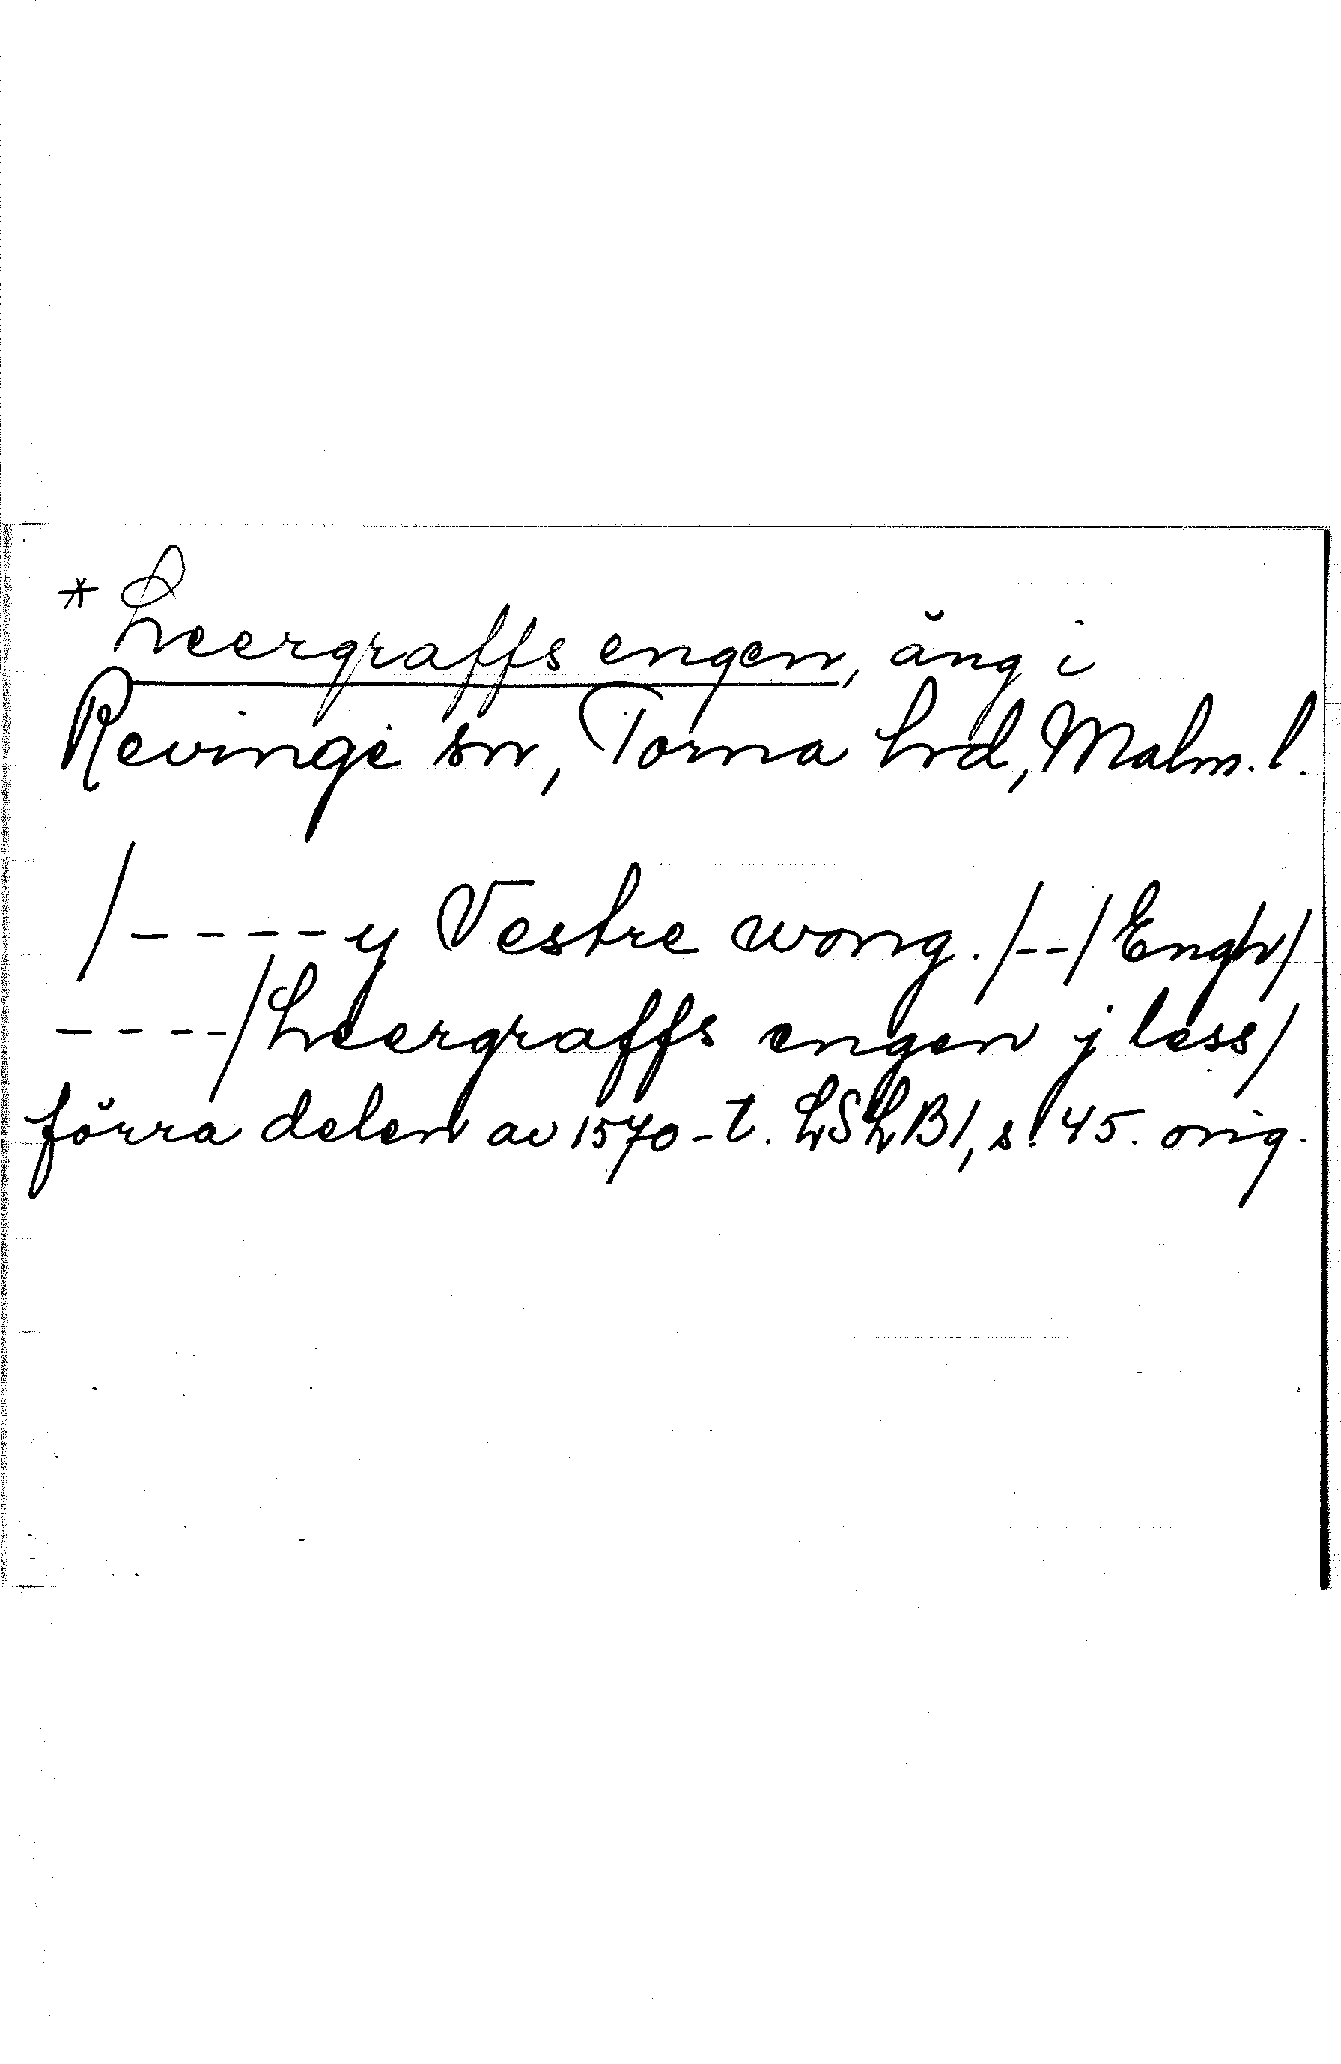 * Leergraffs engen, äng i
Revinge sn, Torna hrd, Malm. l.
/----y Vestre wong. /--/ Engh/
----/ Leergraffs engen j less/
förra delen av 1570-t. LSLB1, s. 45. orig.